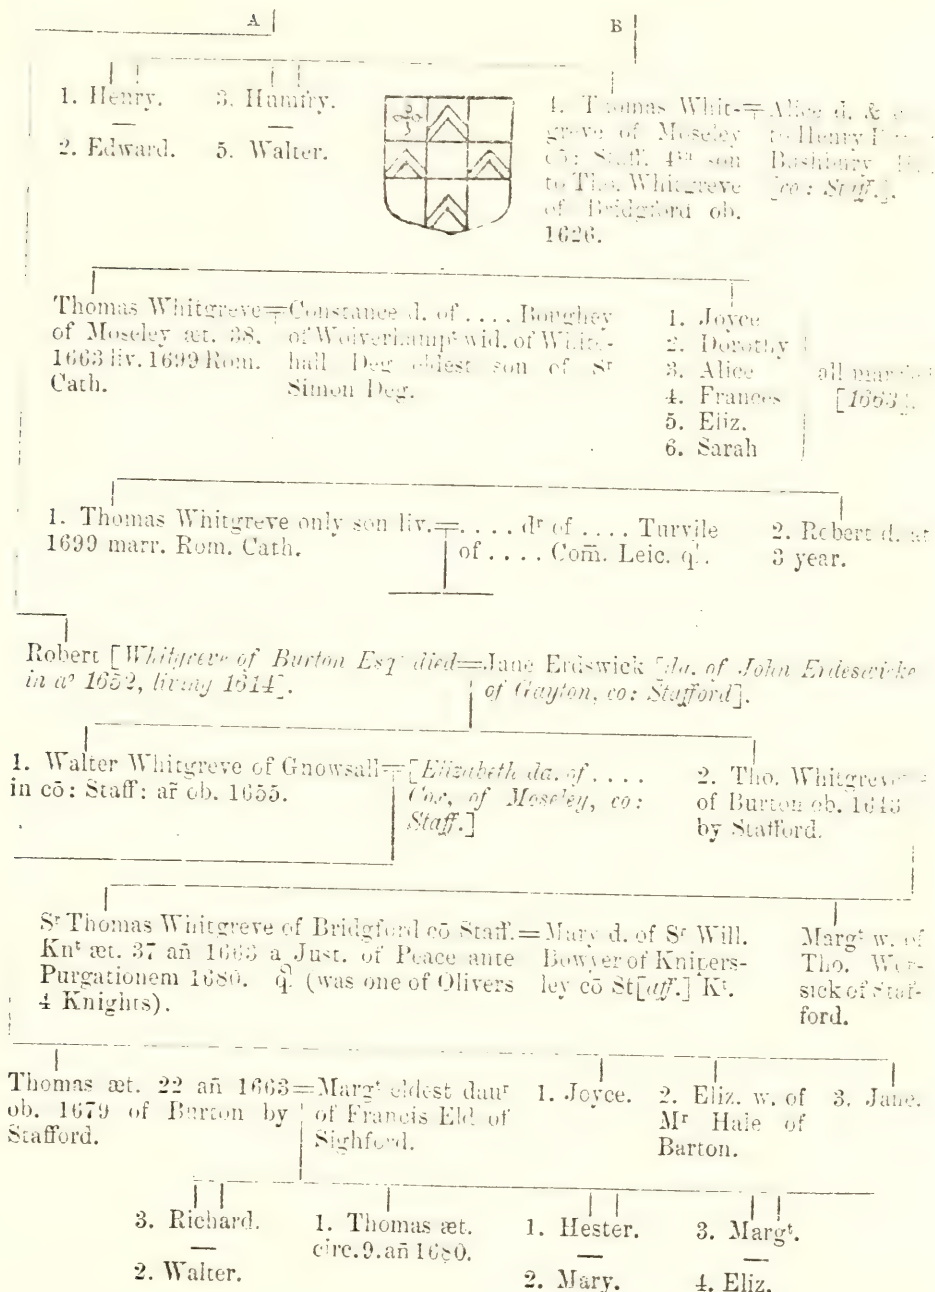 A
B
1. Henry.
3. Humfry.
2. Edward.
5. Walter.
4. Thomas Whit-
greve of Moseley
cō: Staff. 4th son
to Tho. Whitgreve
of Bridgford ob.
1626.
Alice d. &
to Henry
Bushbury
[co: Staff.].
Thomas Whitgreve
of Moseley æt. 38.
1663 liv. 1699 Rom.
Cath.
Constance d. of .... Boughey
of Wolverhampt wid. of White-
hall Deg eldest son of Sr
Simon Deg.
1. Joyce
2. Dorothy
3. Alice
4. Frances
5. Eliz.
6. Sarah
all
[1663].
1. Thomas Whitgreve only son liv.
1699 marr. Rom. Cath.
.... dr of .... Turvile
of .... Com̄. Leic. q.
2. Robert d. at
3 year.
Robert [Whitgreve of Burton Esqr died
in ao 1652, living 1614].
Jane Erdswick [da. of John Erdeswicke
of Gayton, co: Stafford].
1. Walter Whitgreve of Gnowsall
in cō: Staff: ar̄ ob. 1655.
[Elizabeth da. of ....
Cox, of Moseley, co:
Staff.]
2. Tho. Whitgreve =
of Burton ob.
by Stafford.
Sr Thomas Whitgreve of Bridgford cō Staff.
Knt æt. 37 an̄ 1663 a Just. of Peace ante
Purgationem 1680. q. (was one of Olivers
4 Knights).
Mary d. of Sr Will.
Bowyer of Knipers-
ley cō St[aff.] Kt.
Margt w. of
Tho. Wor-
sick of Staf-
ford.
Thomas æt. 22 an̄ 1663
ob. 1679 of Burton by
Stafford.
Margt eldest daur
of Francis Eld of
Sighford.
1. Joyce.
2. Eliz. w. of
Mr Hale of
Barton.
3. Jane.
3. Richard.
2. Walter.
1. Thomas æt.
circ. 9. an̄ 1680.
1. Hester.
2. Mary.
3. Margt.
4. Eliz.